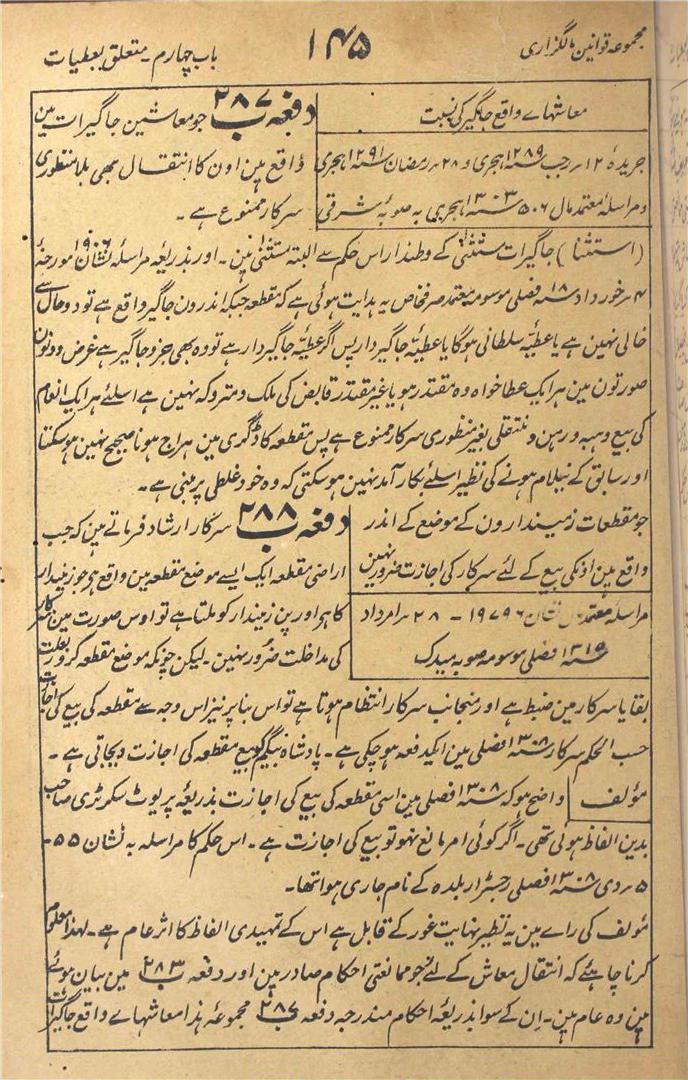 مجموعہ قوانین مالگزاری
۱۴۵
باب چہارم۔ متعلق بعطیات
معاشہاے واقع جاگیر کی نسبت
جریدہ ۱۲؍ رجب ۱۲۸۹ سنہ ہجری و ۲۸؍ رمضان ۱۲۹۱ سنہ ہجری
و مراسلہ معتمد مال ۵۰۶ سنہ ۱۳۰۳ ہجری بہ صوبہ شرقی
دفعہ ۲۸۷ ب جو معاشین جاگیرات مین
واقع ہین اون کا انتقال بھی بلا منظوری
سرکار ممنوع ہے ۔
(استثنا) جاگیرات مستثنیٰ کے وطندار اس حکم سے البتہ مستثنیٰ ہین ۔ اور بذریعہ مراسلہ نشان ۱۹۰۶ مورخہ
۴؍ خورداد ۱۸ سنہ فصلی موسومہ معتمد صرفخاص یہ ہدایت ہوئی ہے کہ مقطعہ جبکہ اندرون جاگیر واقع ہے تو دو حال سے
خالی نہین ہے یا عطیہ سلطانی ہوگا یا عطیہ جاگیردار پس اگر عطیہ جاگیردار ہے تو وہ بھی جزو جاگیر ہے غرض دونون
صورتون مین ہر ایک عطا خواہ وہ مقتدر ہو یا غیر مقتدر قابض کی ملک و متروکہ نہین ہے اسلئے ہر ایک انعام
کی بیع و ہبہ و رہن و منتقلی بغیر منظوری سرکار ممنوع ہے پس مقطعہ کا ڈگری مین ہراج ہونا صحیح نہین ہوسکتا
اور سابق کے نیلام ہونے کی نظیر اسلئے بکار آمد نہین ہوسکتی کہ وہ خود غلطی پر مبنی ہے ۔
جو مقطعات زمیندارون کے موضع کے اندر
واقع ہین اونکی بیع کے لئے سرکار کی اجازت ضرور نہین
مراسلہ معتمد مال نشان ۱۹۷۹۶ ۔ ۲۸؍ امرداد
۱۳۱۵ سنہ فصلی موسومہ صوبہ میدک
دفعہ ۲۸۸ ب سرکار ارشاد فرماتے ہین کہ جب
اراضی مقطعہ ایک ایسے موضع مقطعہ مین واقع ہو جو زمیندار
کا ہو اور پن زمیندار کو ملتا ہے تو اوس صورت مین سرکار
کی مداخلت ضرور نہین ۔ لیکن چونکہ موضع مقطعہ بعلت
بقایا سرکار مین ضبط ہے اور منجانب سرکار انتظام ہوتا ہے تو اس بنا پر نیز اس وجہ سے مقطعہ کی بیع کی اجازت
حسب الحکم سرکار ۱۳۰۸ سنہ فصلی مین ایکدفعہ ہوچکی ہے ۔ پادشاہ بیگم کو بیع مقطعہ کی اجازت دیجاتی ہے ۔
مؤلف واضح ہو کہ ۱۳۰۸ سنہ فصلی مین اسی مقطعہ کی بیع کی اجازت بذریعہ پریوٹ سکرٹری صاحب
بدین الفاظ ہوئی تھی ۔ اگر کوئی امر مانع نہو تو بیع کی اجازت ہے ۔ اس حکم کا مراسلہ بہ نشان ۵۵ ۔
۵؍ دی ۱۳۰۸ سنہ فصلی رجسٹرار بلدہ کے نام جاری ہوا تھا ۔
مؤلف کی راے مین یہ نظیر نہایت غور کے قابل ہے اس کے تمہیدی الفاظ کا اثر عام ہے ۔ لہذا معلوم
کرنا چاہئے کہ انتقال معاش کے لئے جو ممانعتی احکام صادر ہین اور دفعہ ۲۸۳ ب مین بیان ہوئے
ہین وہ عام ہین ۔ ان کے سوا بذریعہ احکام مندرجہ دفعہ ۲۸۷ ب مجموعہ ہذا معاشہاے واقع جاگیرات